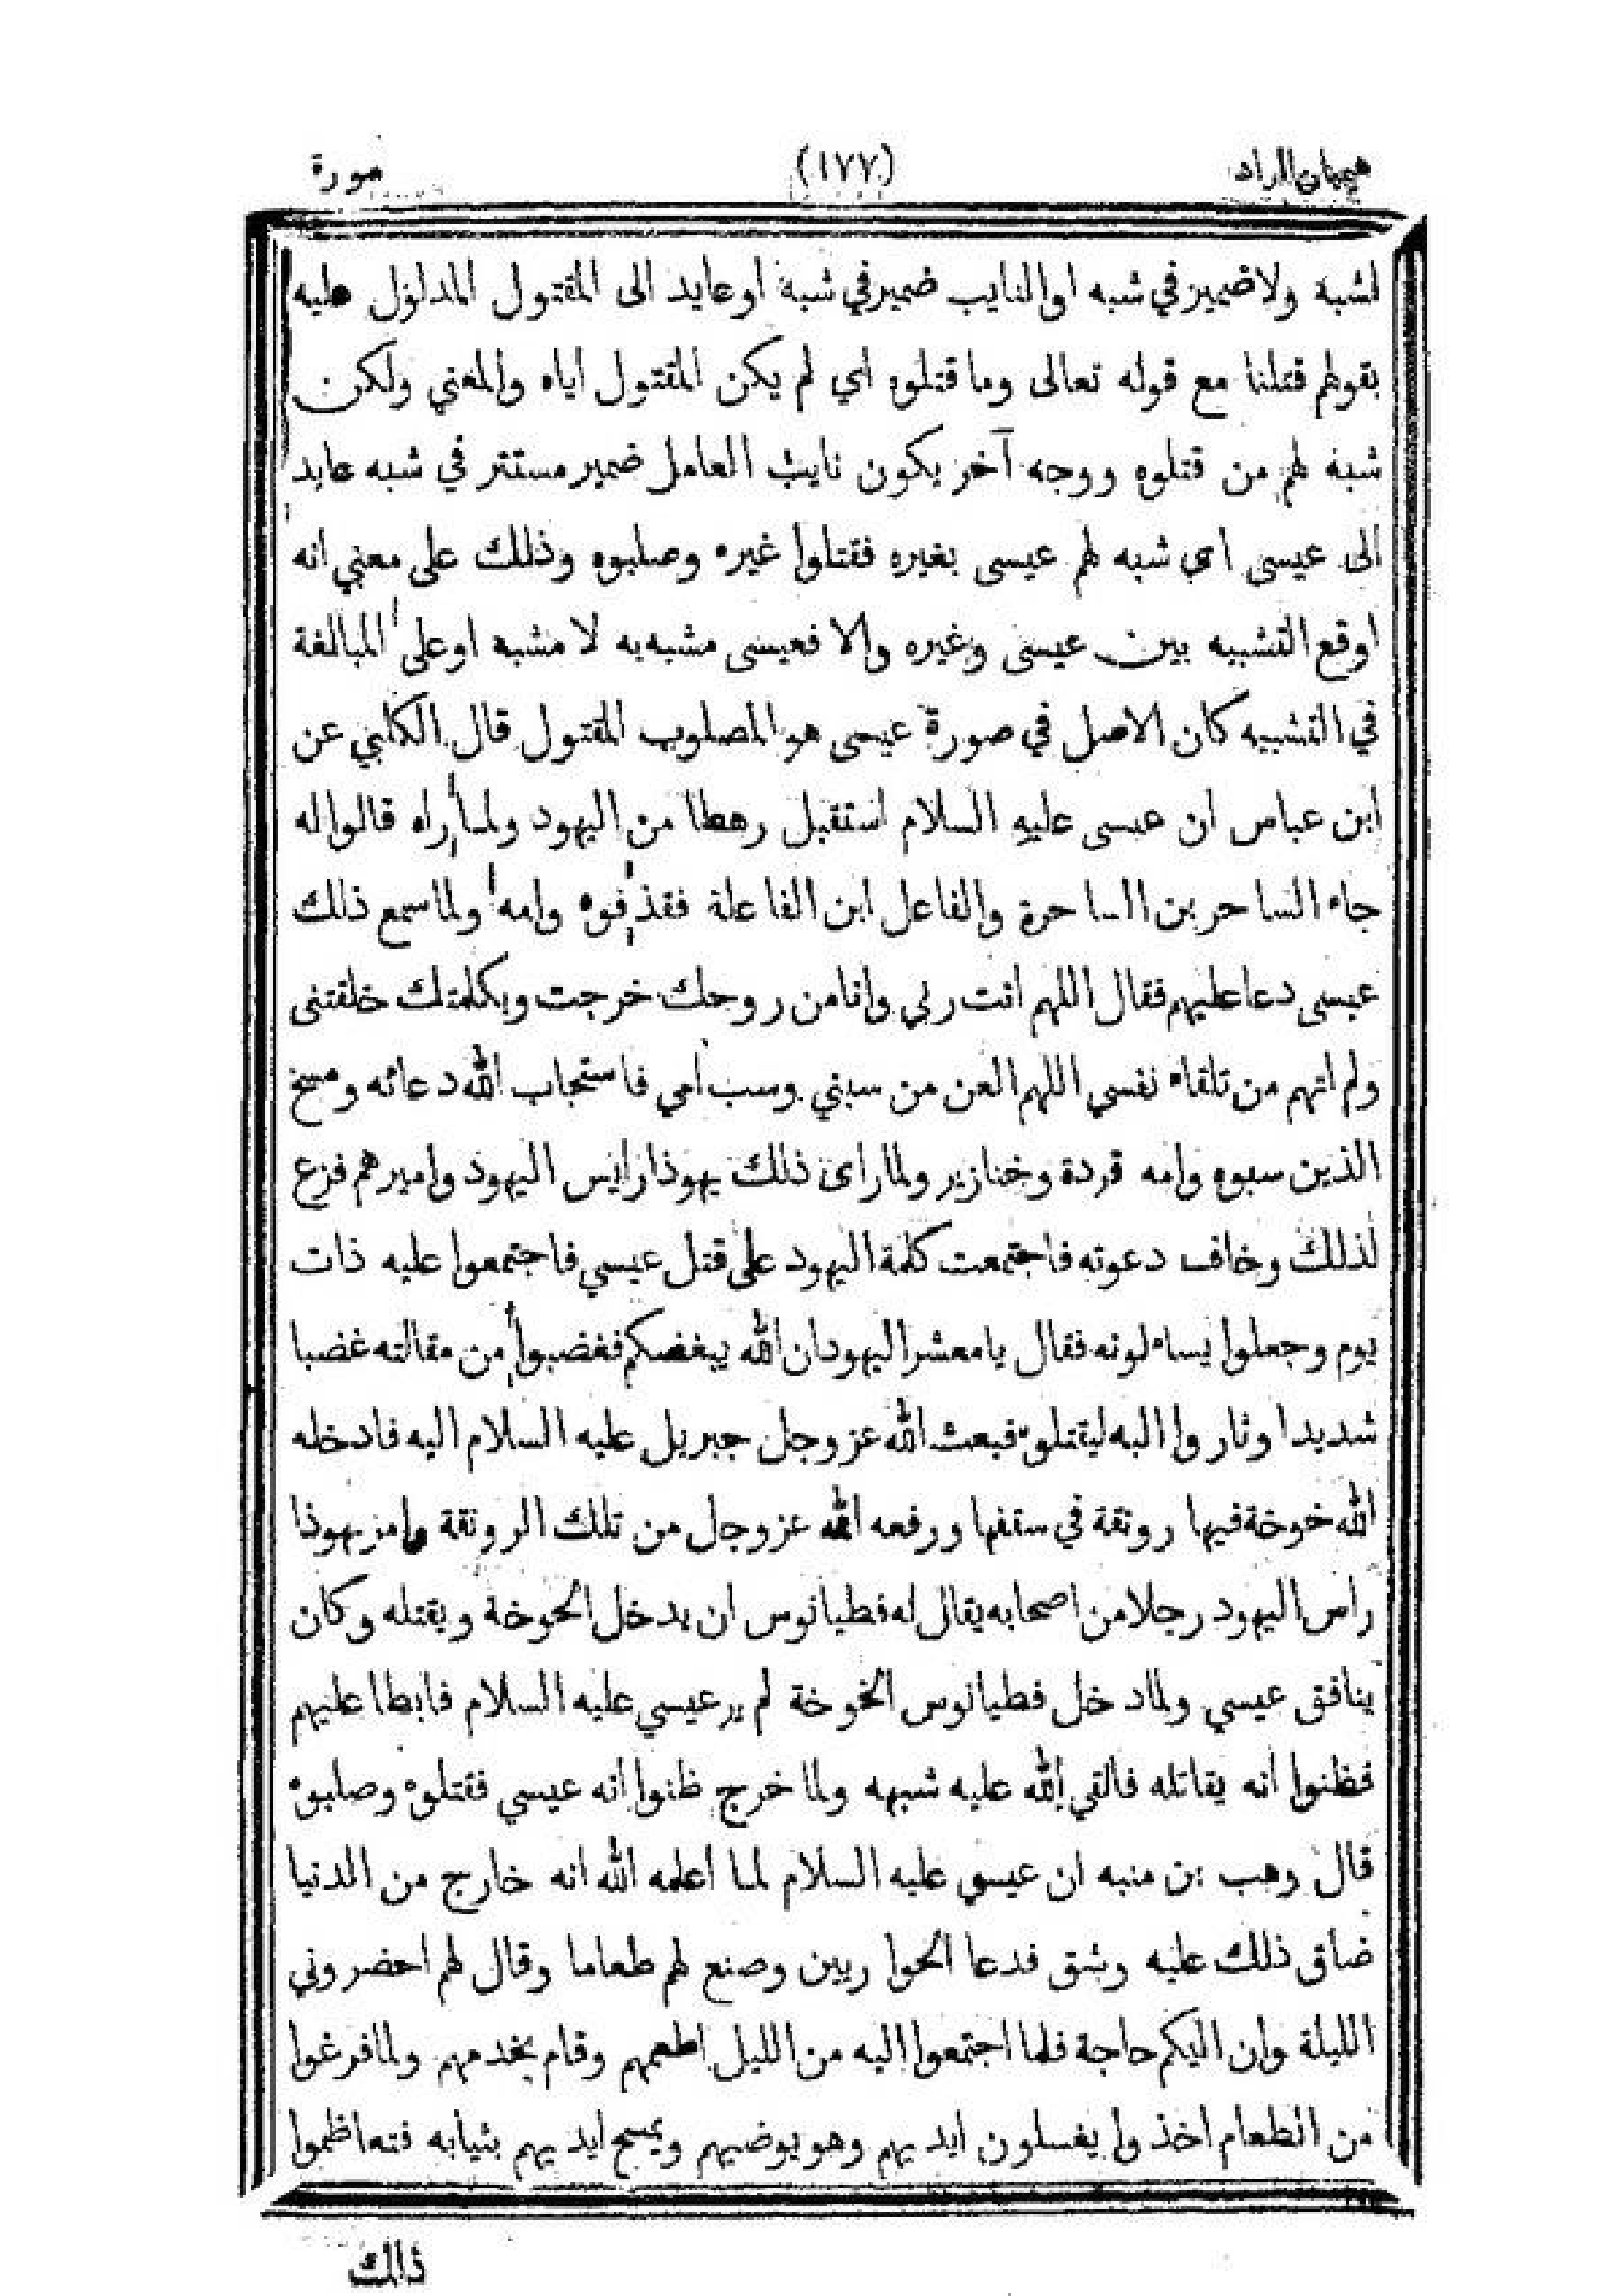 هيميان الزاد (١٧٧) سورة
لشبه ولا ضمير في شبه او النايب ضمير في شبه او عايد الى المقتول المدلول عليه
بقولهم قتلنا مع قوله تعالى وما قتلوه اي لم يكن المقتول اياه والمعني ولكن
شبه لهم من قتلوه ووجه آخر يكون نايب العامل ضمير مستتر في شبه عايد
الى عيسى اي شبه لهم عيسى بغيره فقتلوا غيره وصلبوه وذلك على معني انه
اوقع التشبيه بين عيسى وغيره والا فعيسى مشبه به لا مشبه او على المبالغة
في التشبيه كان الاصل في صورة عيسى هو المصلوب المقتول قال الكلبي عن
ابن عباس ان عيسى عليه السلام استقبل رهطا من اليهود ولما راه قالوا له
جاء الساحر بن الساحرة والفاعل ابن الفاعلة فقذفوه وامه ولما سمع ذلك
عيسى دعا عليهم فقال اللهم انت ربي وانا من روحك خرجت وبكلمتك خلقتنى
ولم اتهم من تلقاء نفسي اللهم العن من سبني وسب امي فاستجاب الله دعائه ومسخ
الذين سبوه وامه قردة وخنازير ولما راى ذلك يهوذا رايس اليهود واميرهم فزع
لذلك وخاف دعوته فاجتمعت كلمة اليهود على قتل عيسي فاجتمعوا عليه ذات
يوم وجعلوا يساءلونه فقال يا معشر اليهود ان الله يبغضكم فغضبوا من مقالته غضبا
شديدا وثاروا اليه ليقتلوه فبعث الله عز وجل جبريل عليه السلام اليه فادخله
الله خوخة فيها روتقة في سقفها ورفعه الله عز وجل من تلك الروتقة وامر يهوذا
راس اليهود رجلا من اصحابه يقال له فطيانوس ان يدخل الخوخة ويقتله وكان
ينافق عيسي ولما دخل فطيانوس الخوخة لم ير عيسي عليه السلام فابطا عليهم
فظنوا انه يقاتله فالقي الله عليه شبهه ولما خرج ظنوا انه عيسي فقتلوه وصلبوه
قال وهب بن منبه ان عيسي عليه السلام لما اعلمه الله انه خارج من الدنيا
ضاق ذلك عليه وشق فدعا الحواريين وصنع لهم طعاما وقال لهم احضروني
الليلة وان اليكم حاجة فلما اجتمعوا اليه من الليل اطعمهم وقام يخدمهم ولما فرغوا
من الطعام اخذ وا يغسلون ايديهم وهو يوضيهم ويمسح ايديهم بثيابه فتعاظموا
ذالك